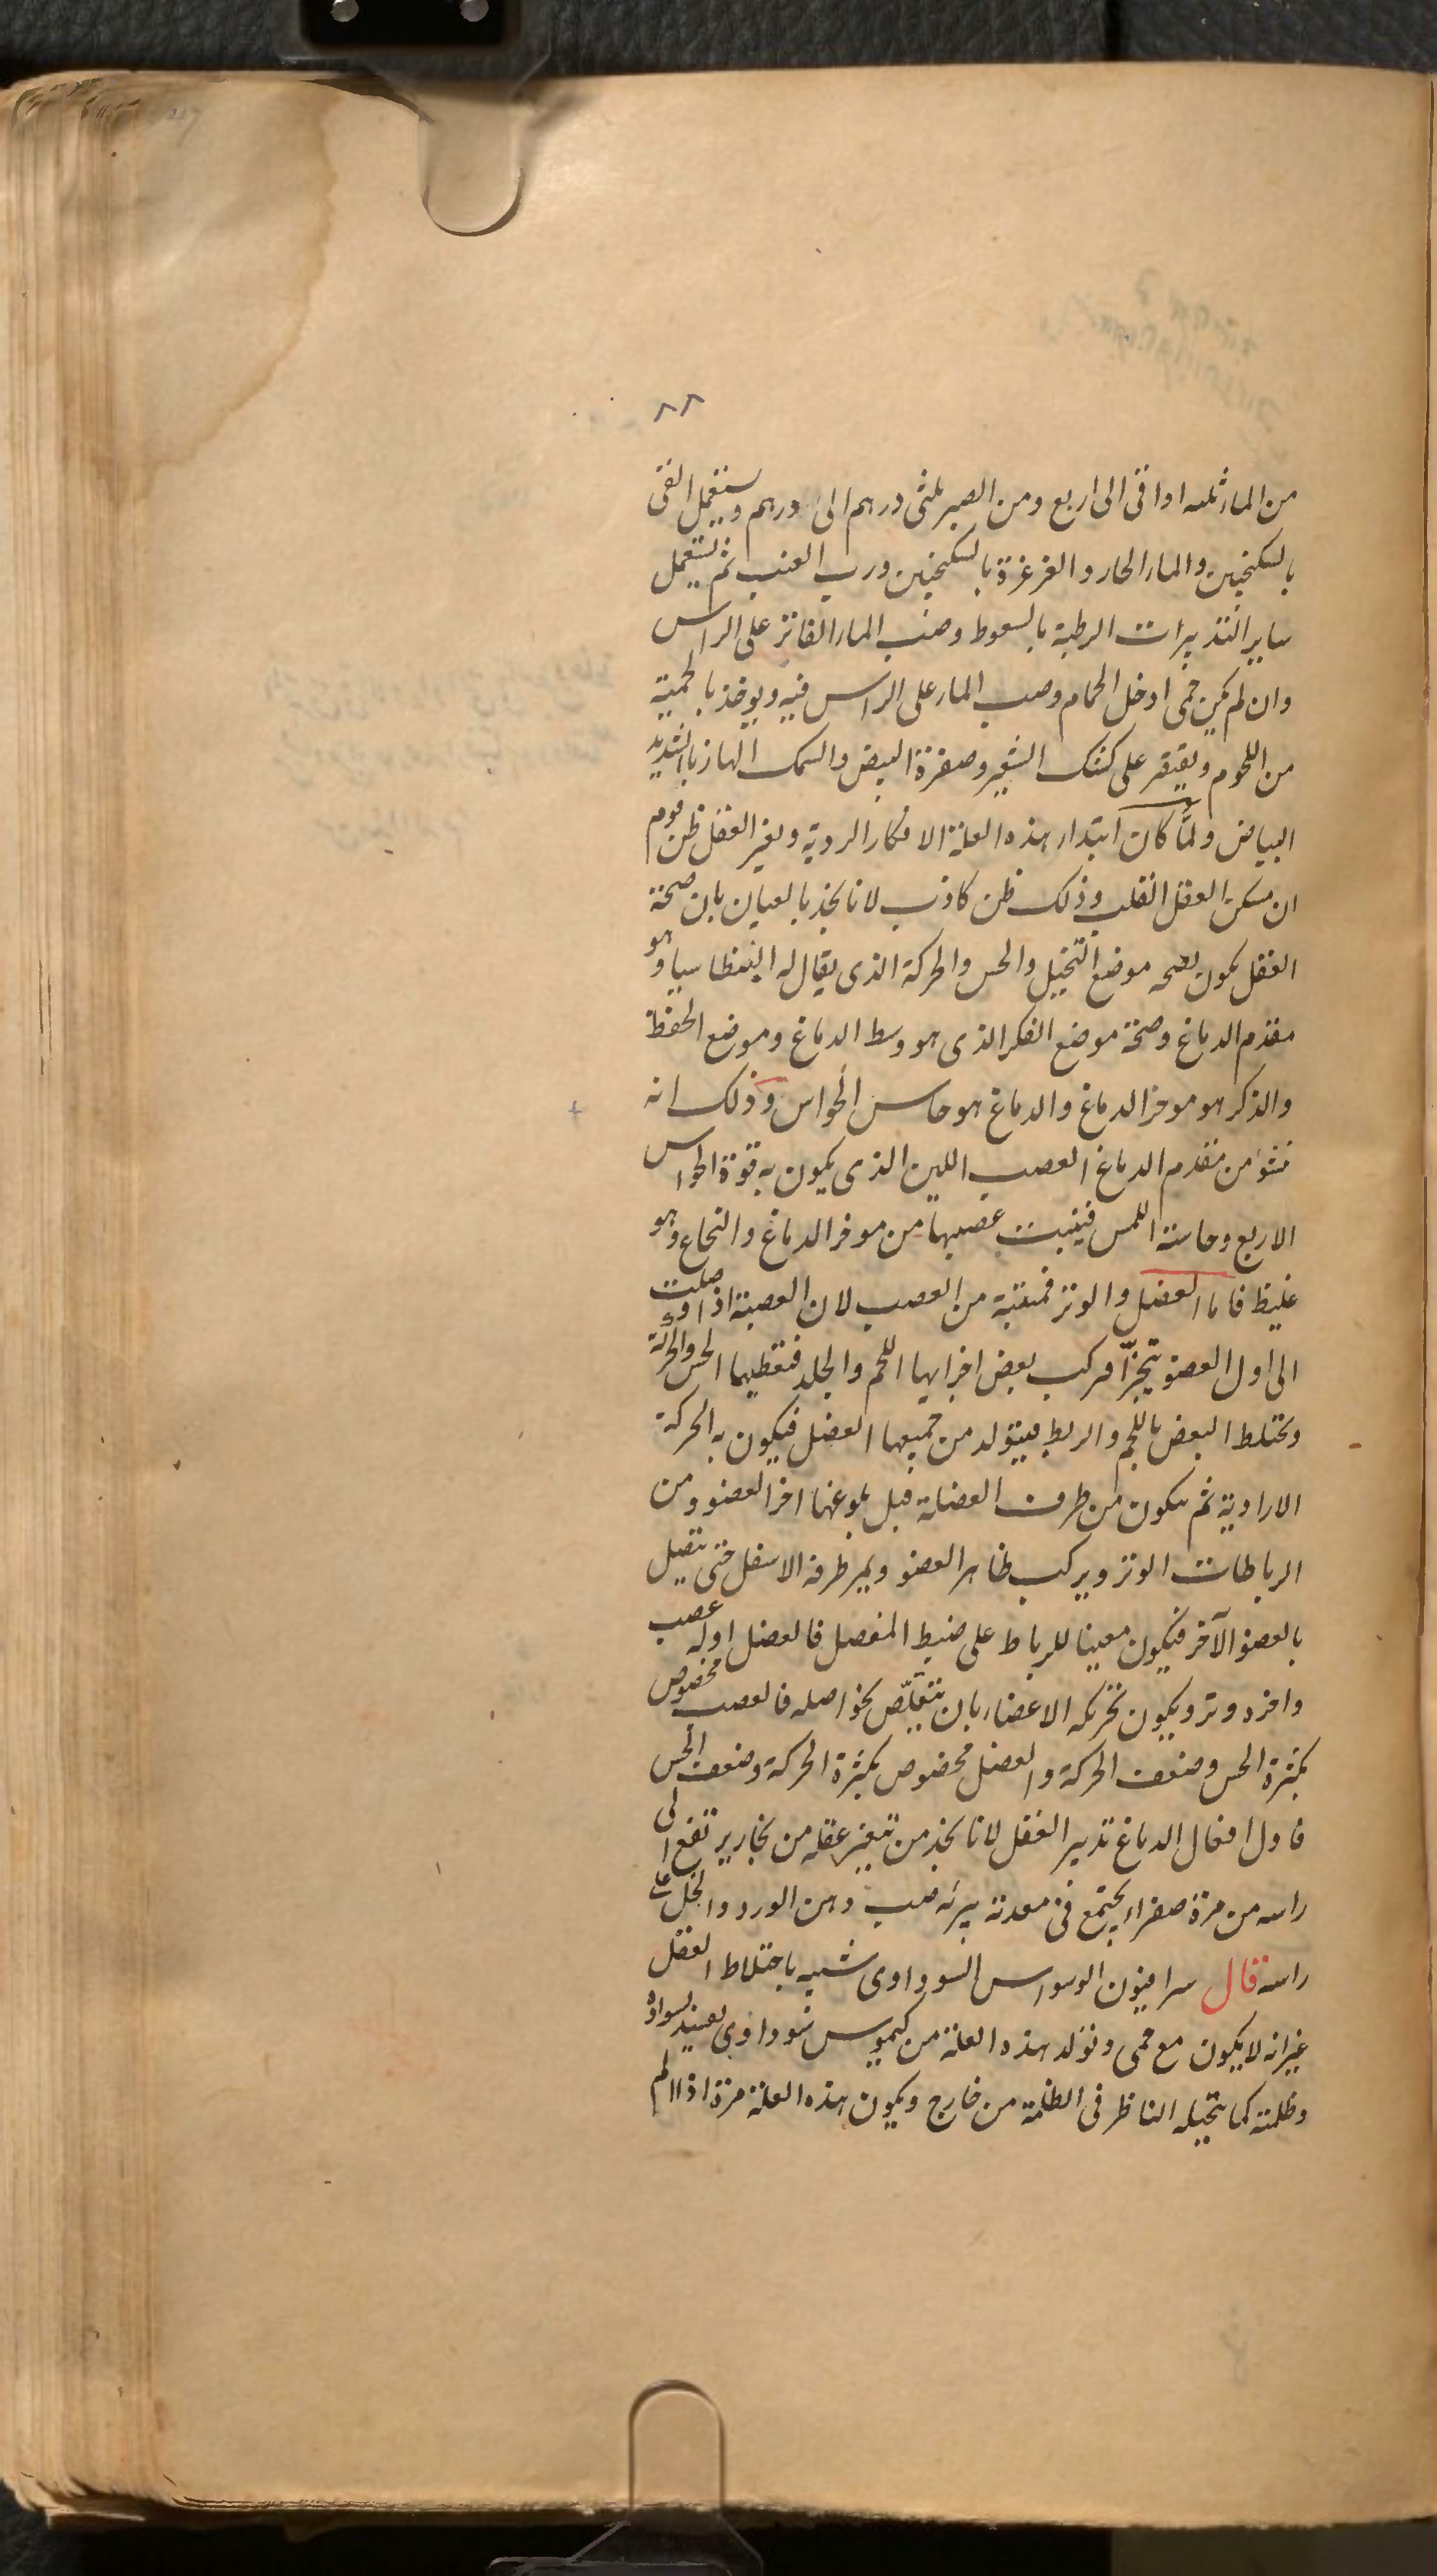 ٨٨
من الماء ثلثه اواقى الى اربع ومن الصبر ثلثى درهم الى درهم ويستعمل القى
بالسكنجبين والماء الحار والغرغرة بالسكنجبين ورب العنب ثم يستعمل
ساير التدبيرات الرطبة بالسعوط وصب الماء الفاتر على الراس
وان لم يكن حمى ادخل الحمام وصب الماء على الراس فيه ويوخذ بالحمية
من اللحوم ويقتصر على كشك الشعير وصفرة البيض والسمك الهازبا الشديد
البياض ولمّا كان ابتداء هذه العلة الافكار الردية وتغير العقل ظن قوم
ان مسكن العقل القلب وذلك ظن كاذب لانا نجد بالعيان بان صحة
العقل يكون بصحه موضع التخيل والحس والحركة الذى يقال له البنطاسيا وهو
مقدم الدماغ وصحة موضع الفكر الذى هو وسط الدماغ وموضع الحفظ
والذكر هو موخر الدماغ والدماغ هو حاس الحواس وذلك انه
تنشؤ من مقدم الدماغ العصب اللين الذى يكون به قوة الحواس
الاربع وحاسة اللمس فينبت عصبها من موخر الدماغ والنخاع وهو
غليظ فاما العضل والوتر فمنبته من العصب لان العصبة اذا وصلت
الى اول العضو يتجزّا فركب بعض اجزايها اللحم والجلد فتعطيها الحس والحركة
وتختلط البعض باللحم والربط فيتولد من جميعها العضل فيكون به الحركة
الارادية ثم يتكون من طرف العضلة قبل بلوغها اخر العضو ومن
الرباطات الوتر ويركب ظاهر العضو ويمر طرفه الاسفل حتى يتصل
بالعضو الآخر فيكون معينا للرباط على ضبط المفصل فالعضل اوله عصب
واخره وتر ويكون تحريكه الاعضاء بان يتقلّص نحو اصله فالعصب مخصوص
بكثرة الحس وضعف الحركة والعضل مخصوص بكثرة الحركة وضعف الحس
فاول افعال الدماغ تدبير العقل لانا نجد من تتغير عقله من بخار يرتفع الى
راسه من مرة صفراء يجتمع فى معدته يبرئه صب دهن الورد والخل على
راسه قال سرافيون الوسواس السوداوى شبيه باختلاط العقل
غير انه لا يكون مع حمى وتولد هذه العلة من كيموس سوداوى بسواده
وظلمته كما يتخيله الناظر فى الظلمة من خارج ويكون هذه العلة مرة اذا الم